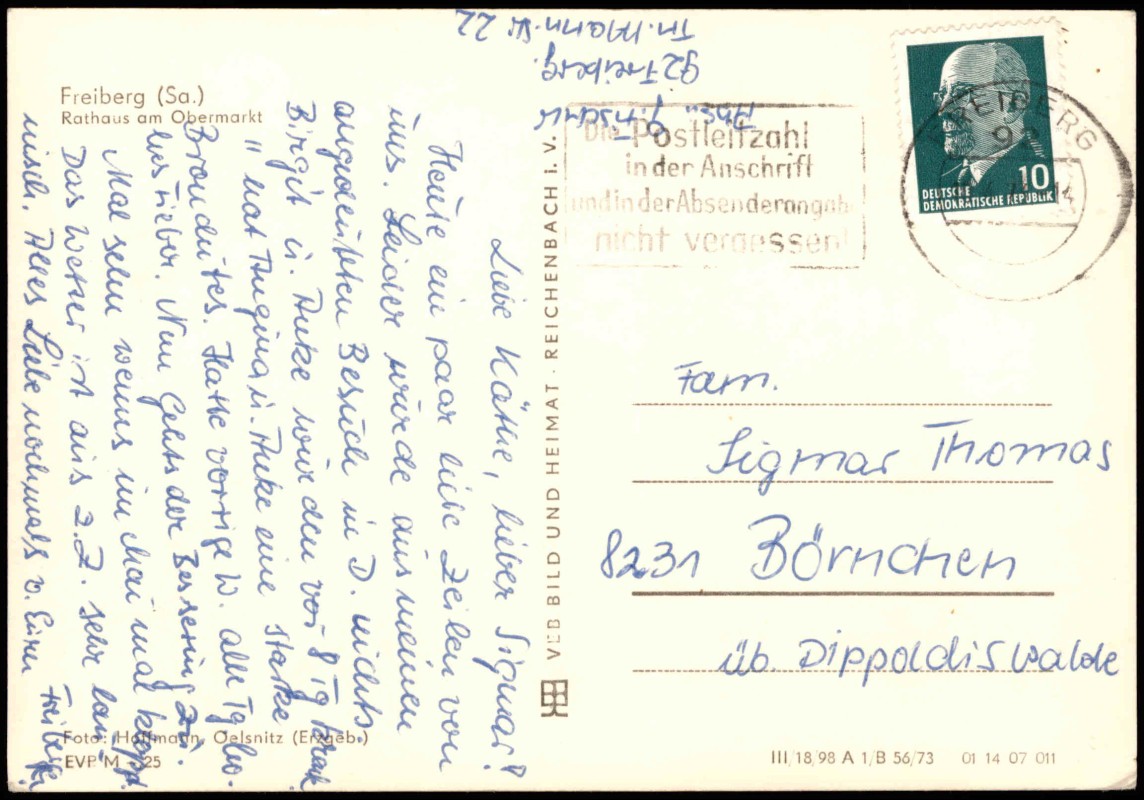 Freiberg (Sa.)
Rathaus am Obermarkt
Liebe Käthe, lieber Sigmar!
Heute ein paar liebe Zeilen von
uns. Leider wurde aus meinen
angedeuteten Besuch in D. nichts.
Birgit u. Anke wurden vor 8 Tg krank.
" hat Angina u. Anke eine starke
Bronchites. Hatte vorrige W. alle Tg ho.
hes Fieber. Nun gehts der Besserung zu.
Mal sehn wenns im Mai mal klappt.
Das Wetter ist aus z.Z. sehr lau.
nisch. Alles Liebe nochmals v. Euren Freiberger
Foto: Hoffmann, Oelsnitz (Erzgeb.)
EVP M -,25
VEB BILD UND HEIMAT · REICHENBACH i. V.
92 Freiberg.
Th. Mann-Str. 22
Die Postleitzahl
in der Anschrift
und in der Absenderangabe
nicht vergessen!
FREIBERG
92
10
DEUTSCHE
DEMOKRATISCHE REPUBLIK
Fam.
Sigmar Thomas
8231 Börnchen
üb. Dippoldiswalde
III/18/98 A 1/B 56/73 01 14 07 011